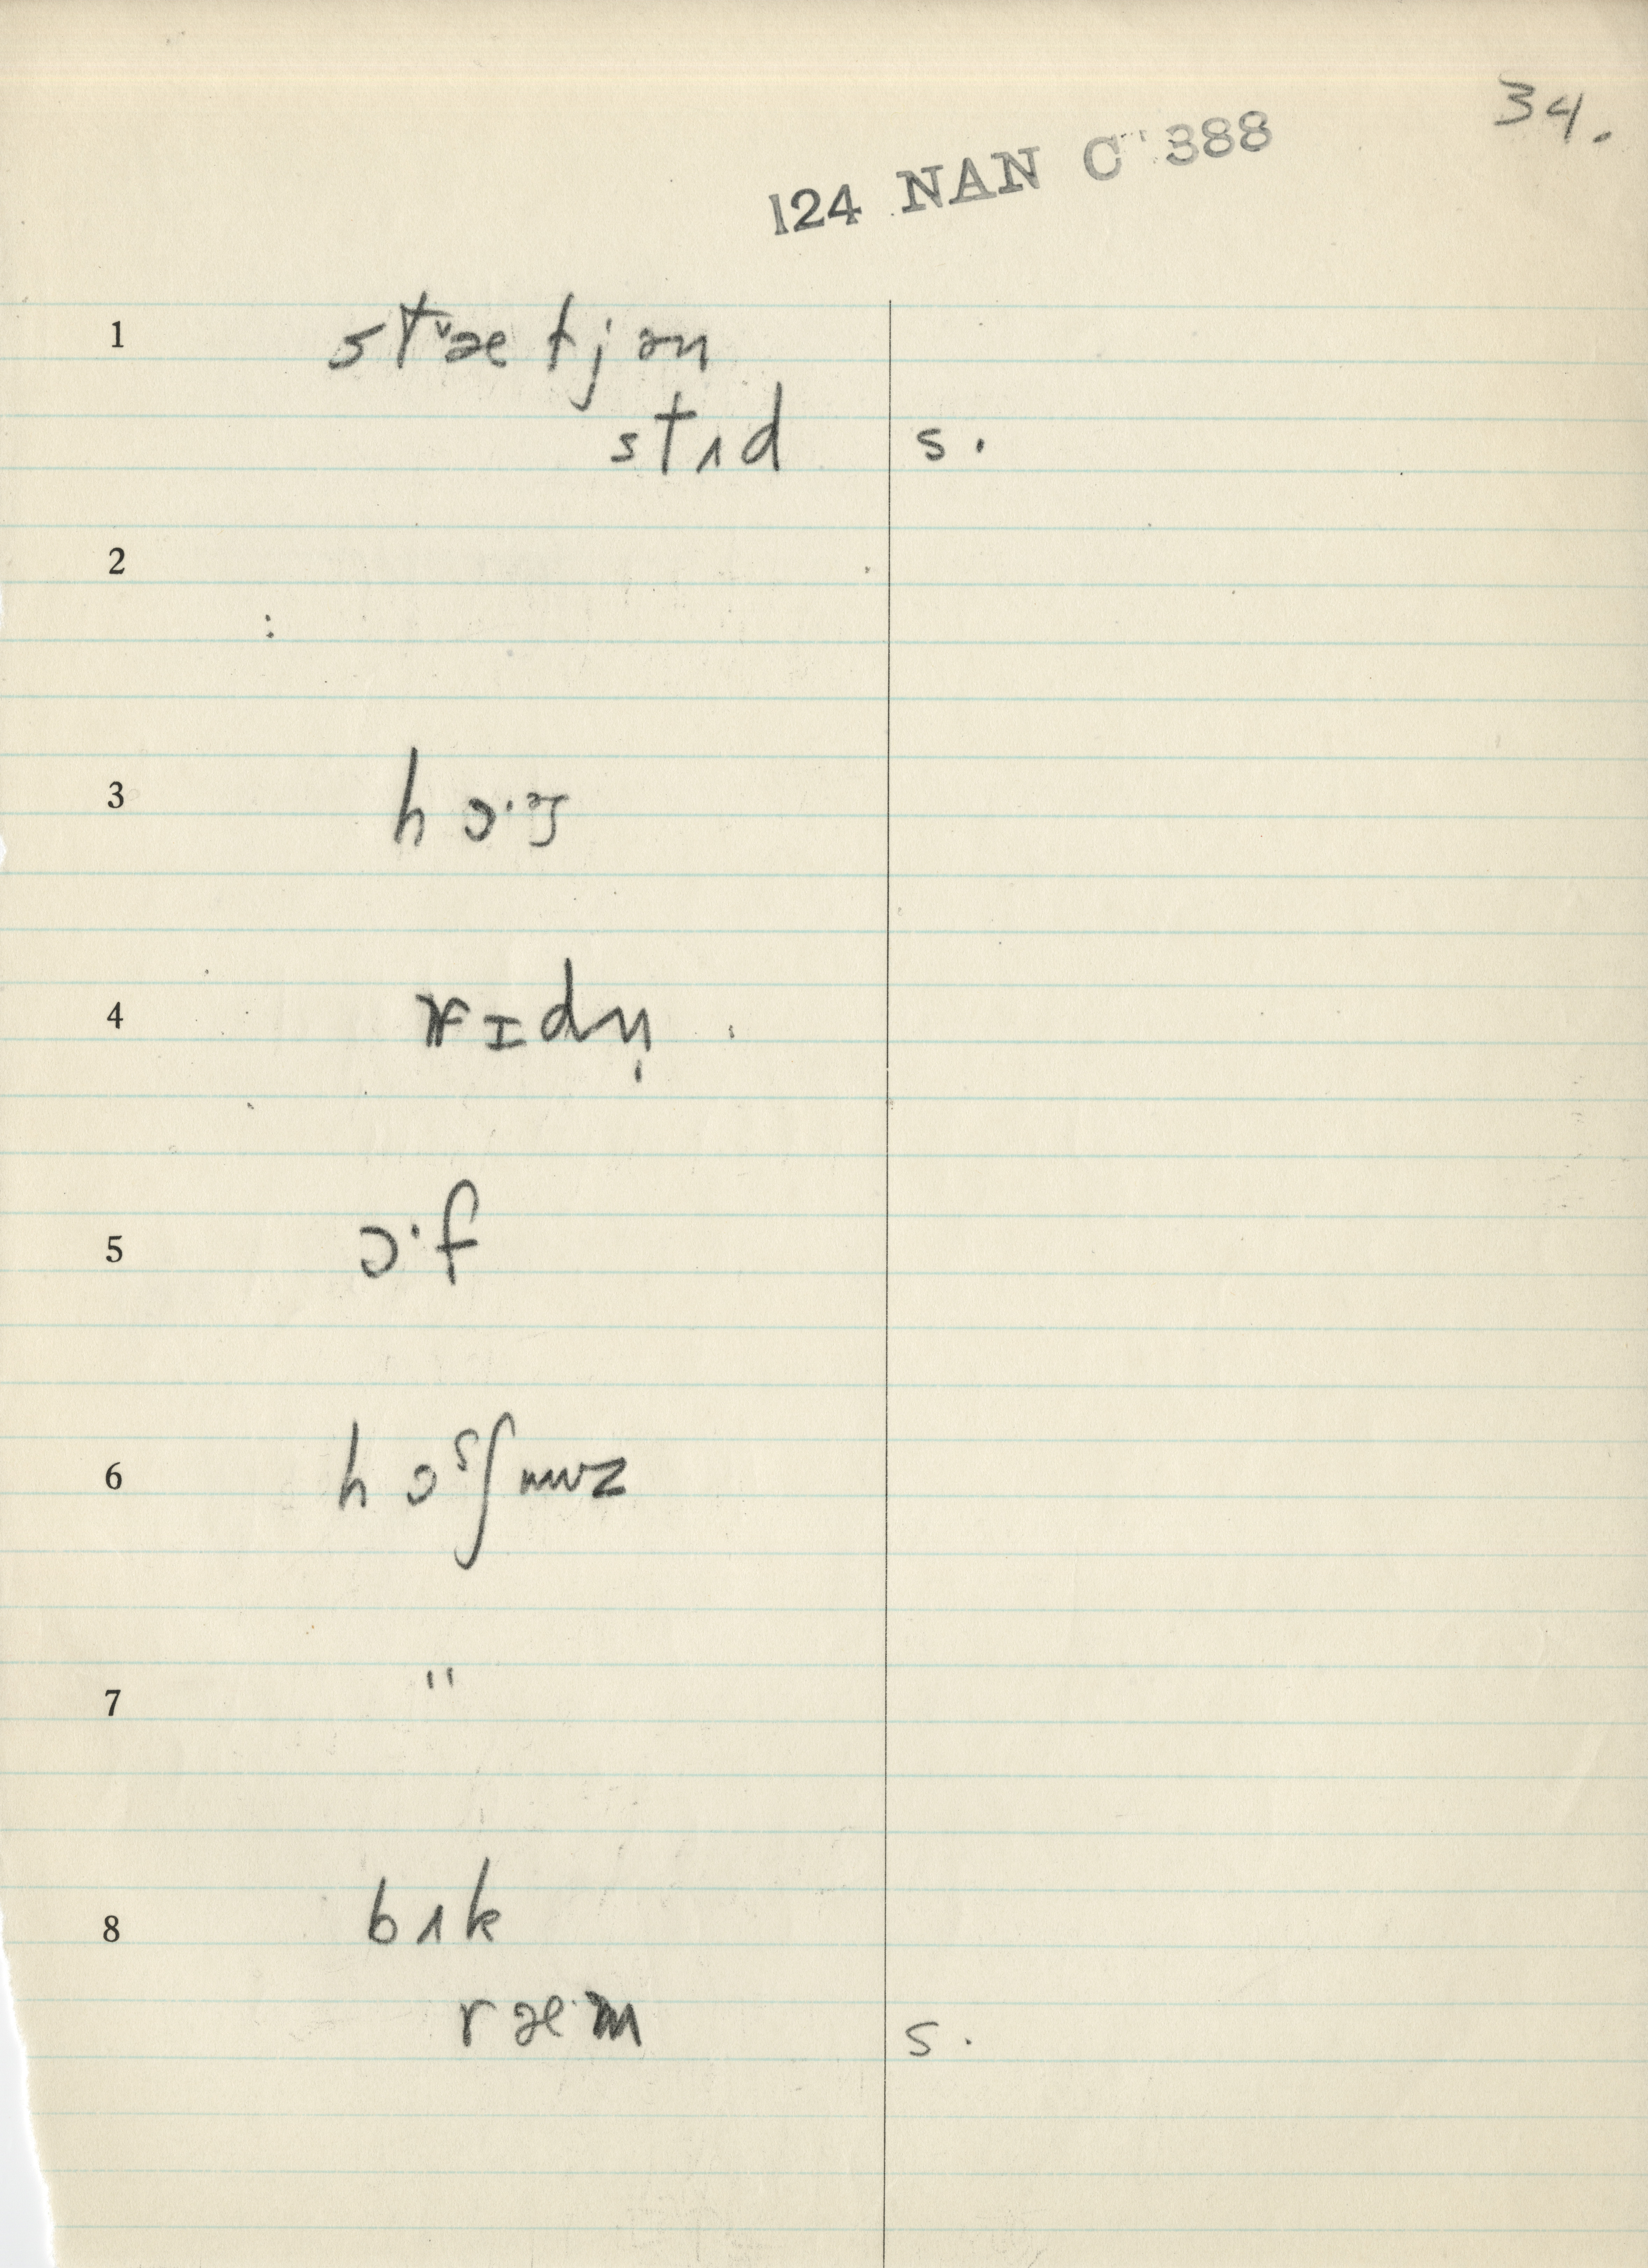 34.
124 NAN C 388
1 stᵛæltjən
stɪd s.
2
3 hɔ·ᵊs
4 rɪdn̩
5 ɔ·f
6 hɔˢʃuwz
7 "
8 bʌk
ræ·m s.